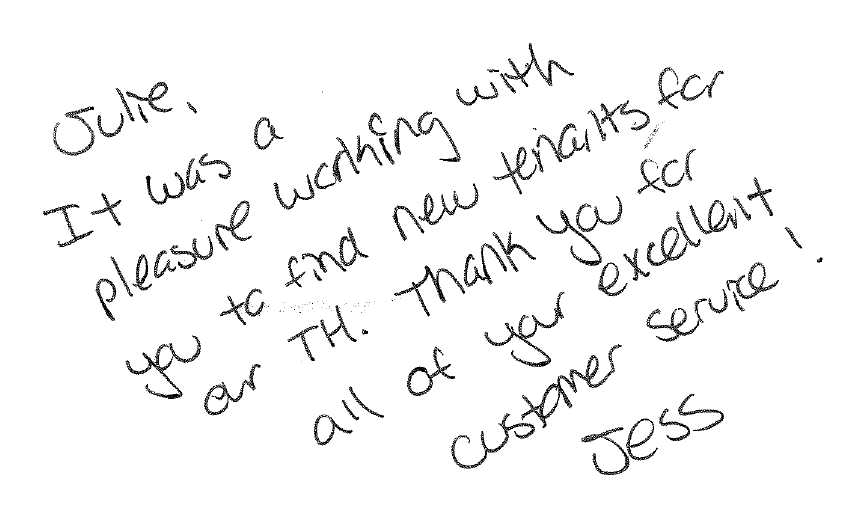 Julie,
It was a
pleasure working with
you to find new tenants for
our TH. Thank you for
all of your excellent
customer service!
Jess